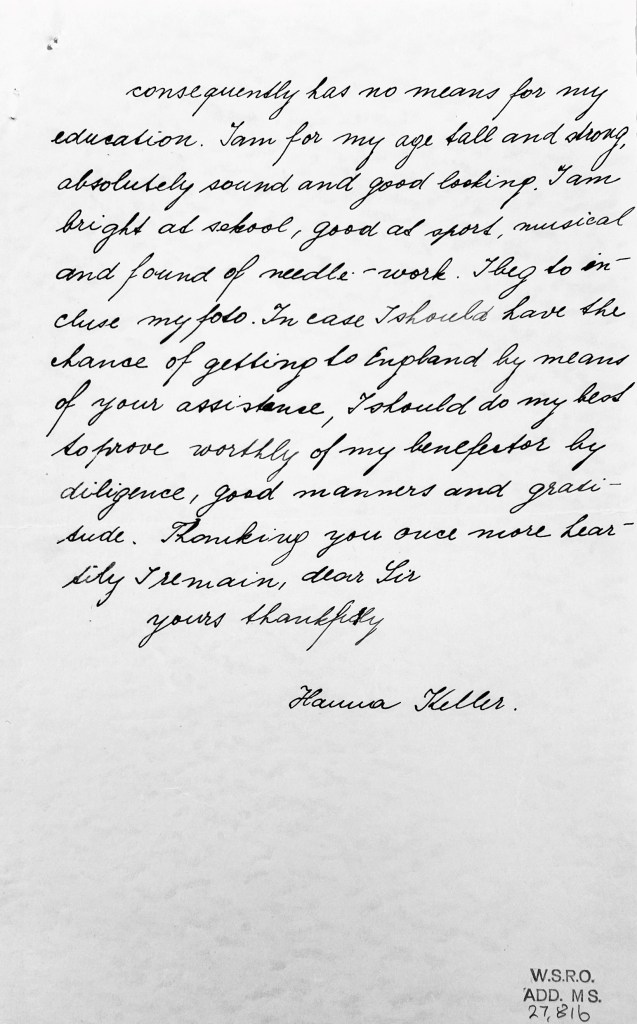 consequently has no means for my
education. I am for my age tall and strong,
absolutely sound and good looking. I am
bright at school, good at sport, musical
and found of needle-work. I beg to in-
cluse my foto. In case I should have the
chance of getting to England by means
of your assistence, I should do my best
to prove worthly of my benefector by
diligence, good manners and grati-
tude. Thanking you once more hear-
tily I remain, dear Sir
yours thankfully
Hanna Keller.
W.S.R.O.
ADD. MS.
27,816